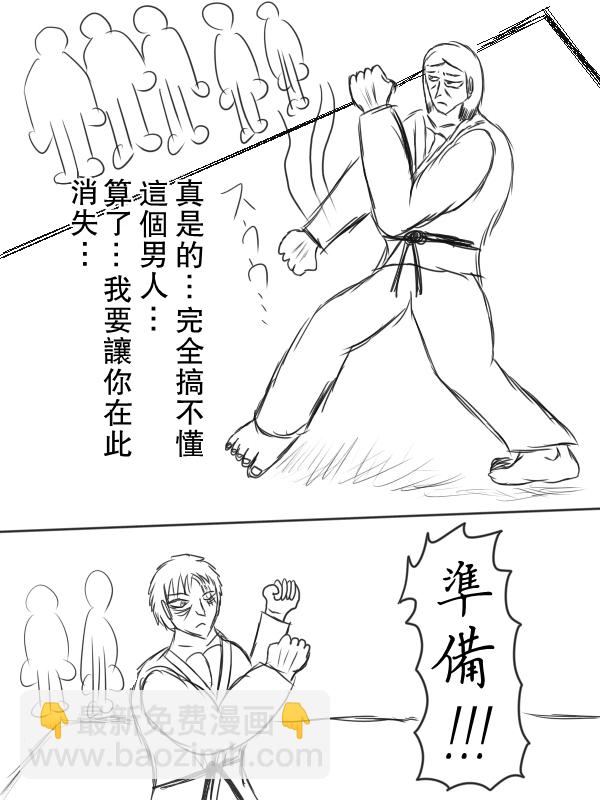 真是的…完全搞不懂
這個男人…
算了…我要讓你在此
消失…
スウゥゥ…
準備!!!
👇最新免费漫画👇
www.baozimh.com